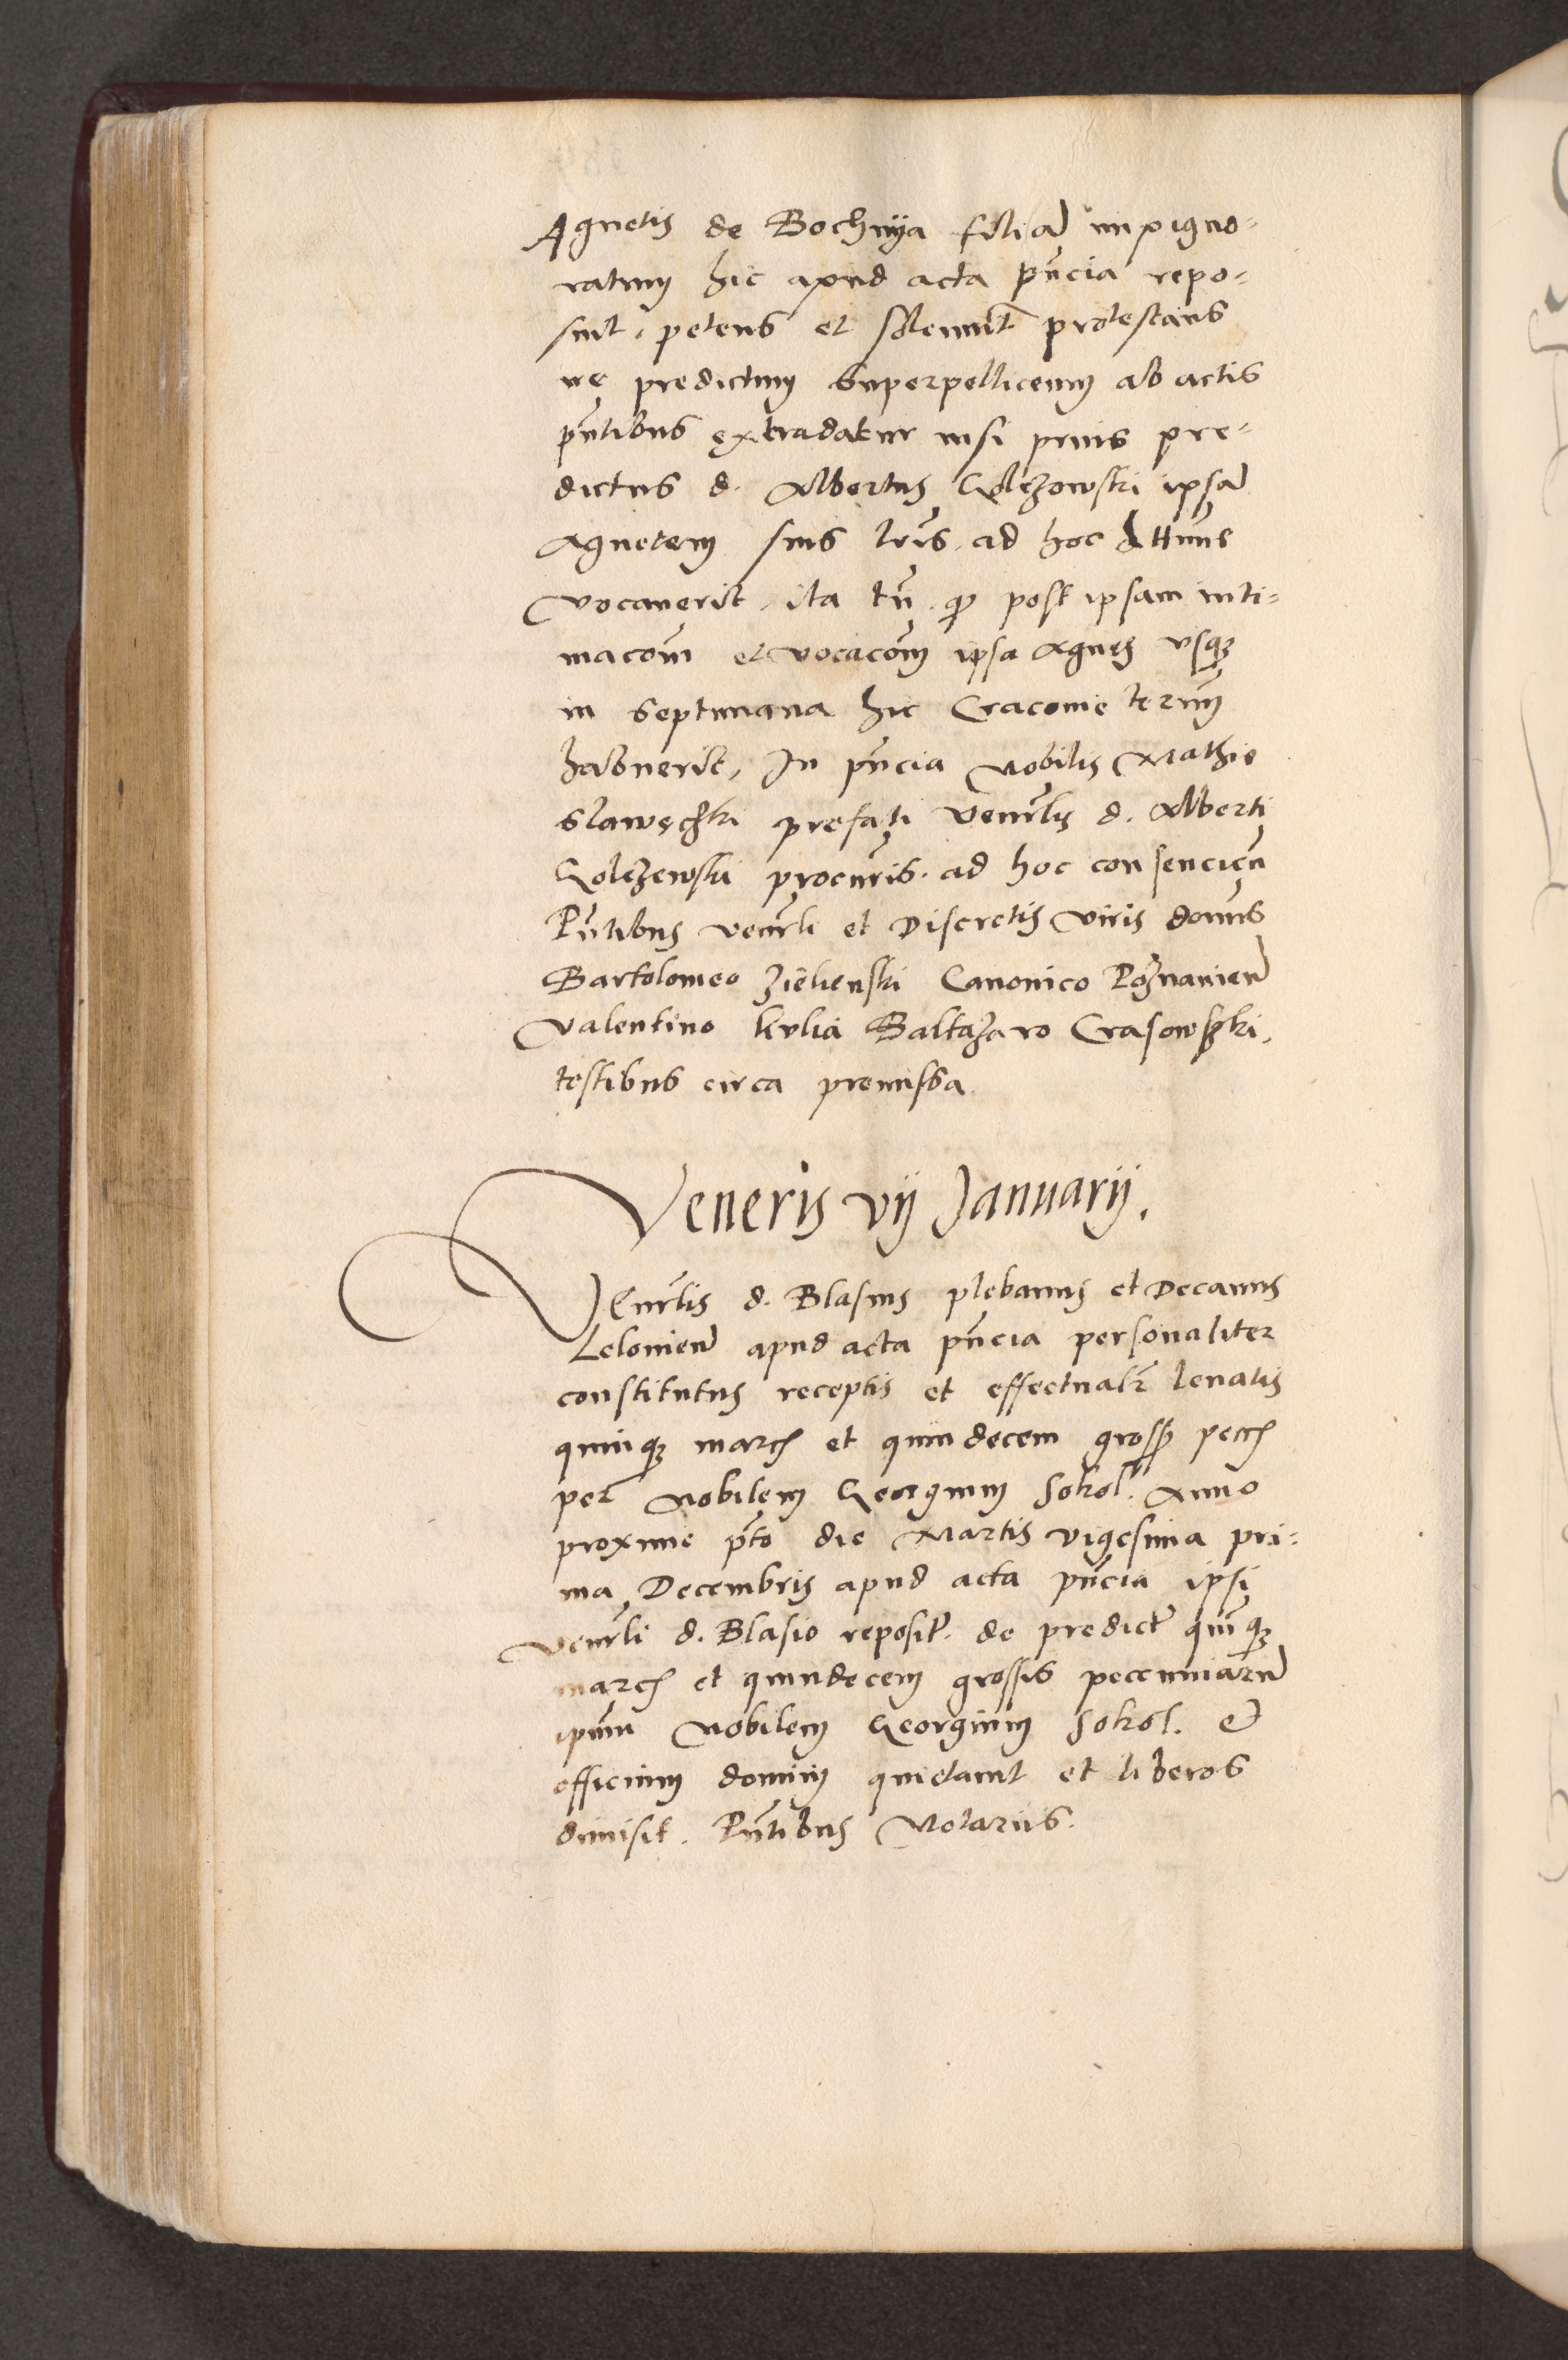 Agnetis de Bochnya filiam impigno-
ratum hic apud acta pñcia repo-
suit, petens et solemnit protestans
ne predictum superpelliceum ab actis
pñtibus extradatur nisi prius pre-
dictus d. Albertus Golczowski ipsam
Agnetem suis lris ad hoc
vocauerit, ita tñ q post ipsam inti-
macõm et vocacõm ipsa Agnes vsq
in septimana hic Cracouie termĩ
habuerit, In pñcia Nobilis Mathie
Slawęczki prefati venrlis d. Alberti
Golczewski procuris ad hoc consencien
Pñtibus venrli et Discretis viris domis
Bartolomeo Zielienski Canonico Poznanien
Valentino kulia Baltazaro Crasowszki,
testibus circa premissa.
Veneris vij Januarij.
VEnrlis d. Blasius plebanus et Decanus
Lelouien apud acta pñcia personaliter
constitutus receptis et effectualr leuatis
quinq march et quindecem gross pecch
per Nobilem Georgium Sokol. Anno
proxime pto die Martis vigesima pri-
ma Decembris apud acta pñcia ipsi
venrli d. Blasio reposit. de predict quinq
march et quindecem grossis peccuniarum
ipsum Nobilem Georgium Sokol. et
officium domini quietauit et liberos
dimisit. Pñtibus Notariis.